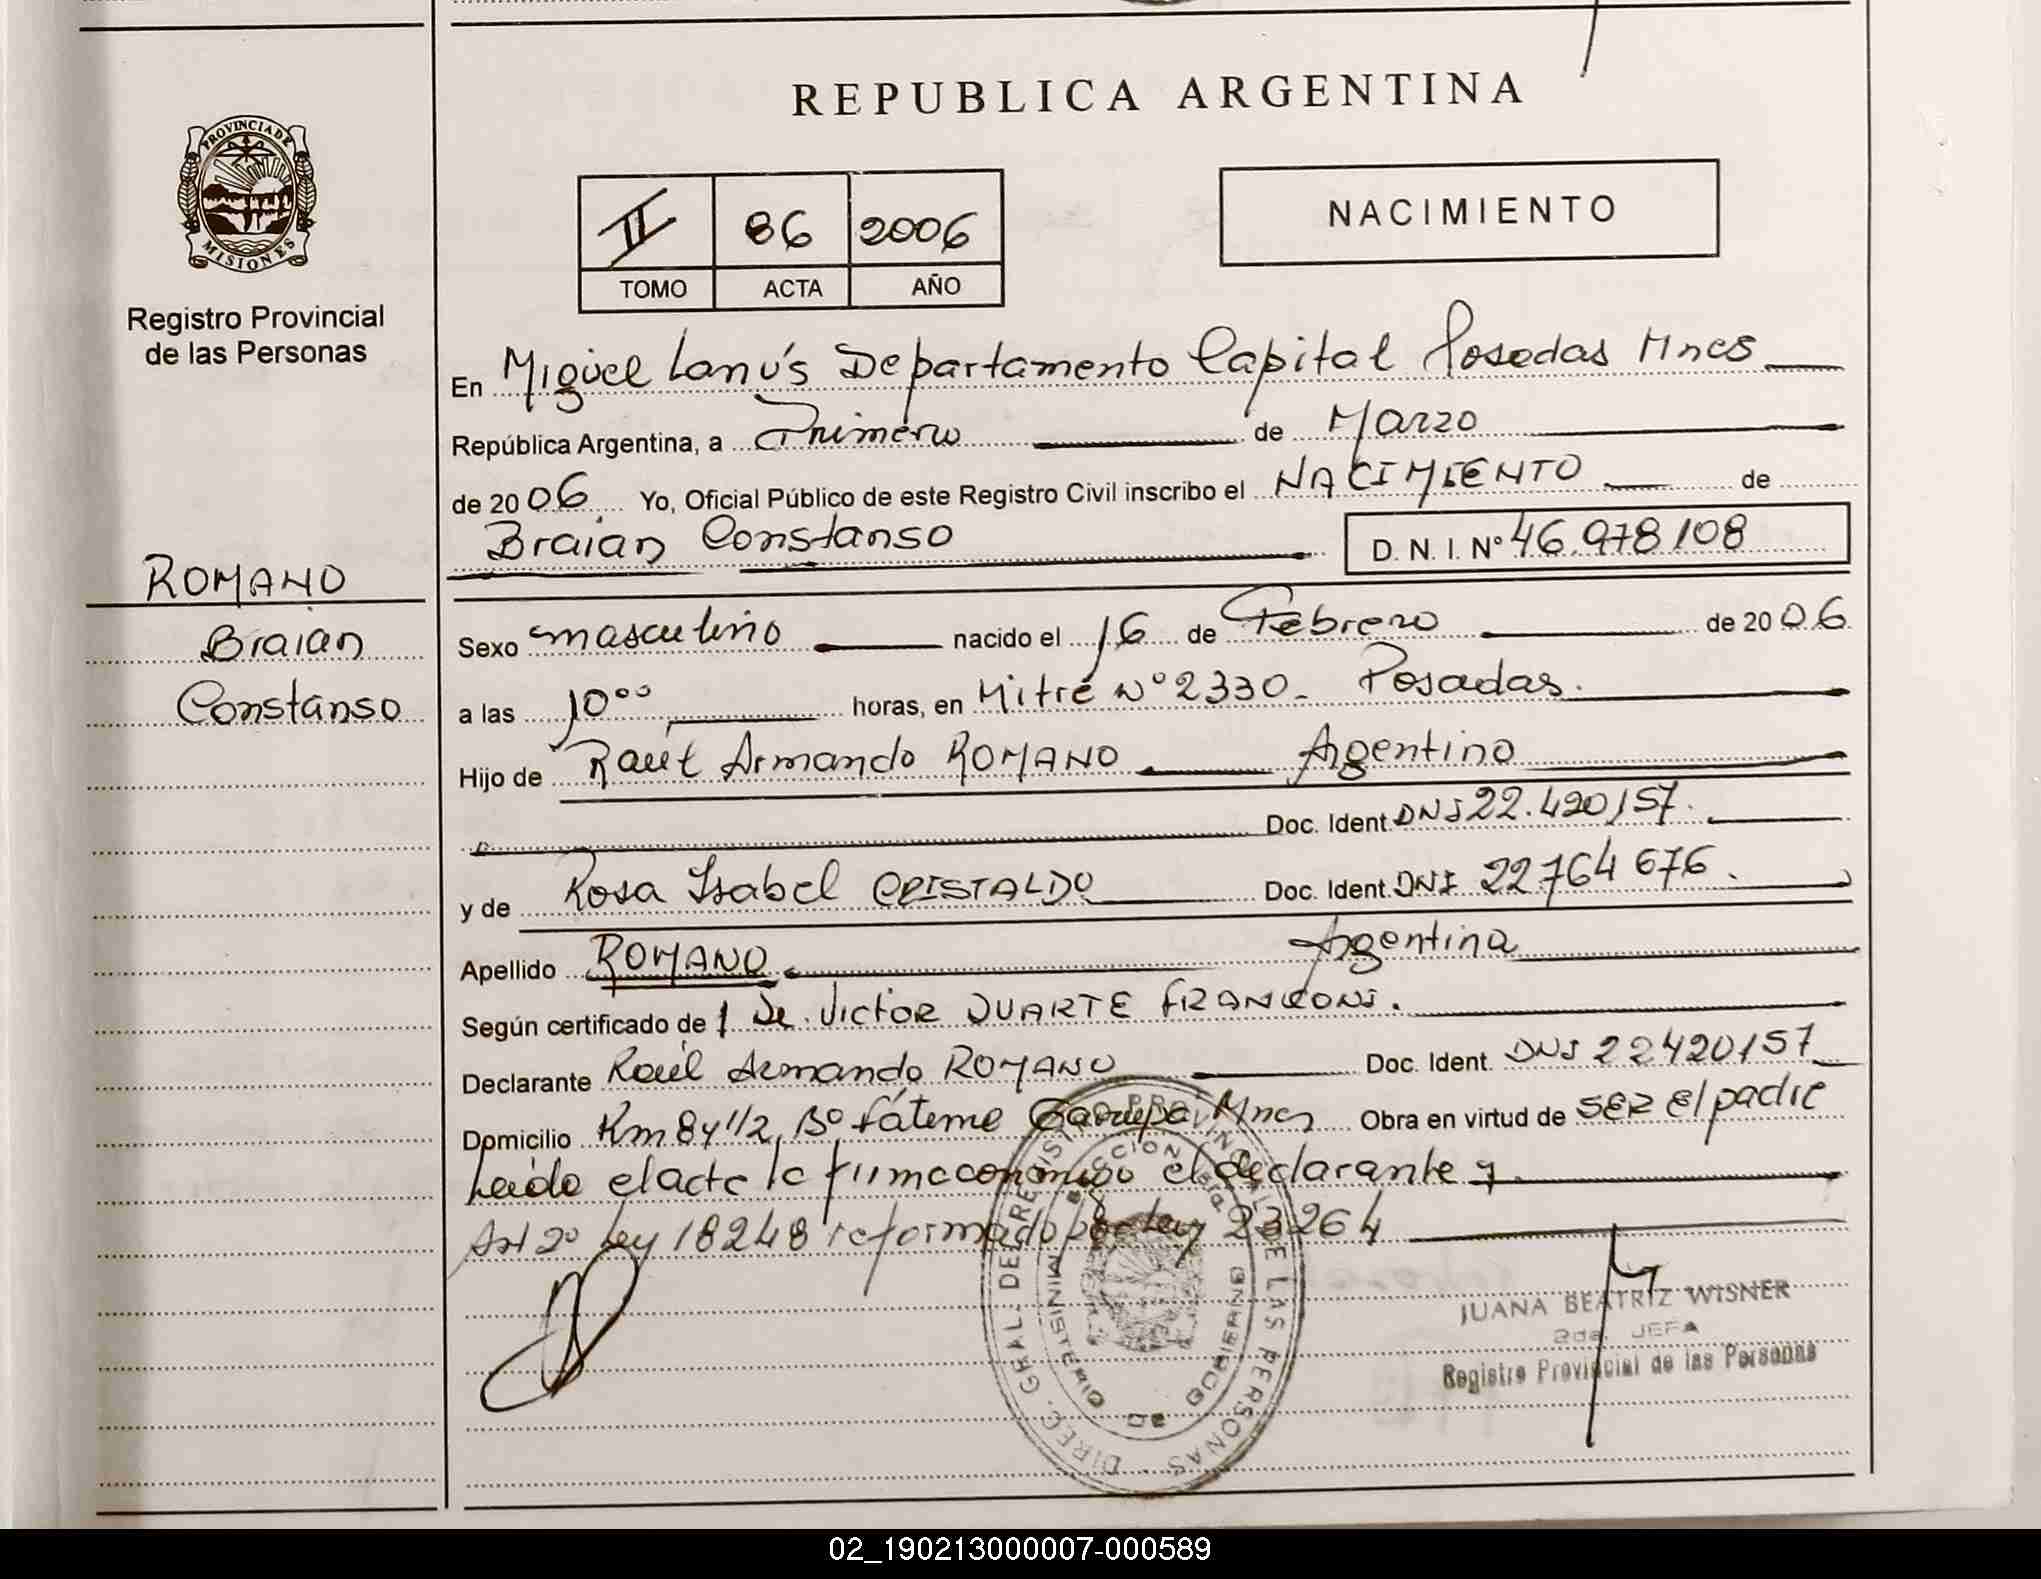 REPUBLICA ARGENTINA
PROVINCIA DE MISIONES
Registro Provincial
de las Personas
II 86 2006
TOMO ACTA AÑO
NACIMIENTO
En Miguel Lanús Departamento Capital Posadas Mnes
República Argentina, a Primero de Marzo
de 2006 Yo, Oficial Público de este Registro Civil inscribo el NACIMIENTO de
Braian Constanso D. N. I. N° 46.978108
ROMANO
Braian
Constanso
Sexo masculino nacido el 16 de Febrero de 2006
a las 10°° horas, en Mitre N° 2330- Posadas.
Hijo de Raúl Armando ROMANO Argentino
Doc. Ident. DNI 22.420157.
y de Rosa Isabel CRISTALDO Doc. Ident. DNI 22764676.
Apellido ROMANO Argentina
Según certificado de VICTOR DUARTE
Declarante Raúl Armando ROMANO Doc. Ident. DNI 22420157
Domicilio Km 8y 1/2 B° Fátima Garupa Mnes Obra en virtud de SER El padre
Leída el acta la firma conmigo el declarante y
Art 2° Ley 18248 reformado por Ley 23264
DIREC. GRAL. DEL REGISTRO PROVINCIAL DE LAS PERSONAS
MINISTERIO DE GOBIERNO
JUANA BEATRIZ WISNER
2da. JEFA
Registro Provincial de las Personas
02_190213000007-000589